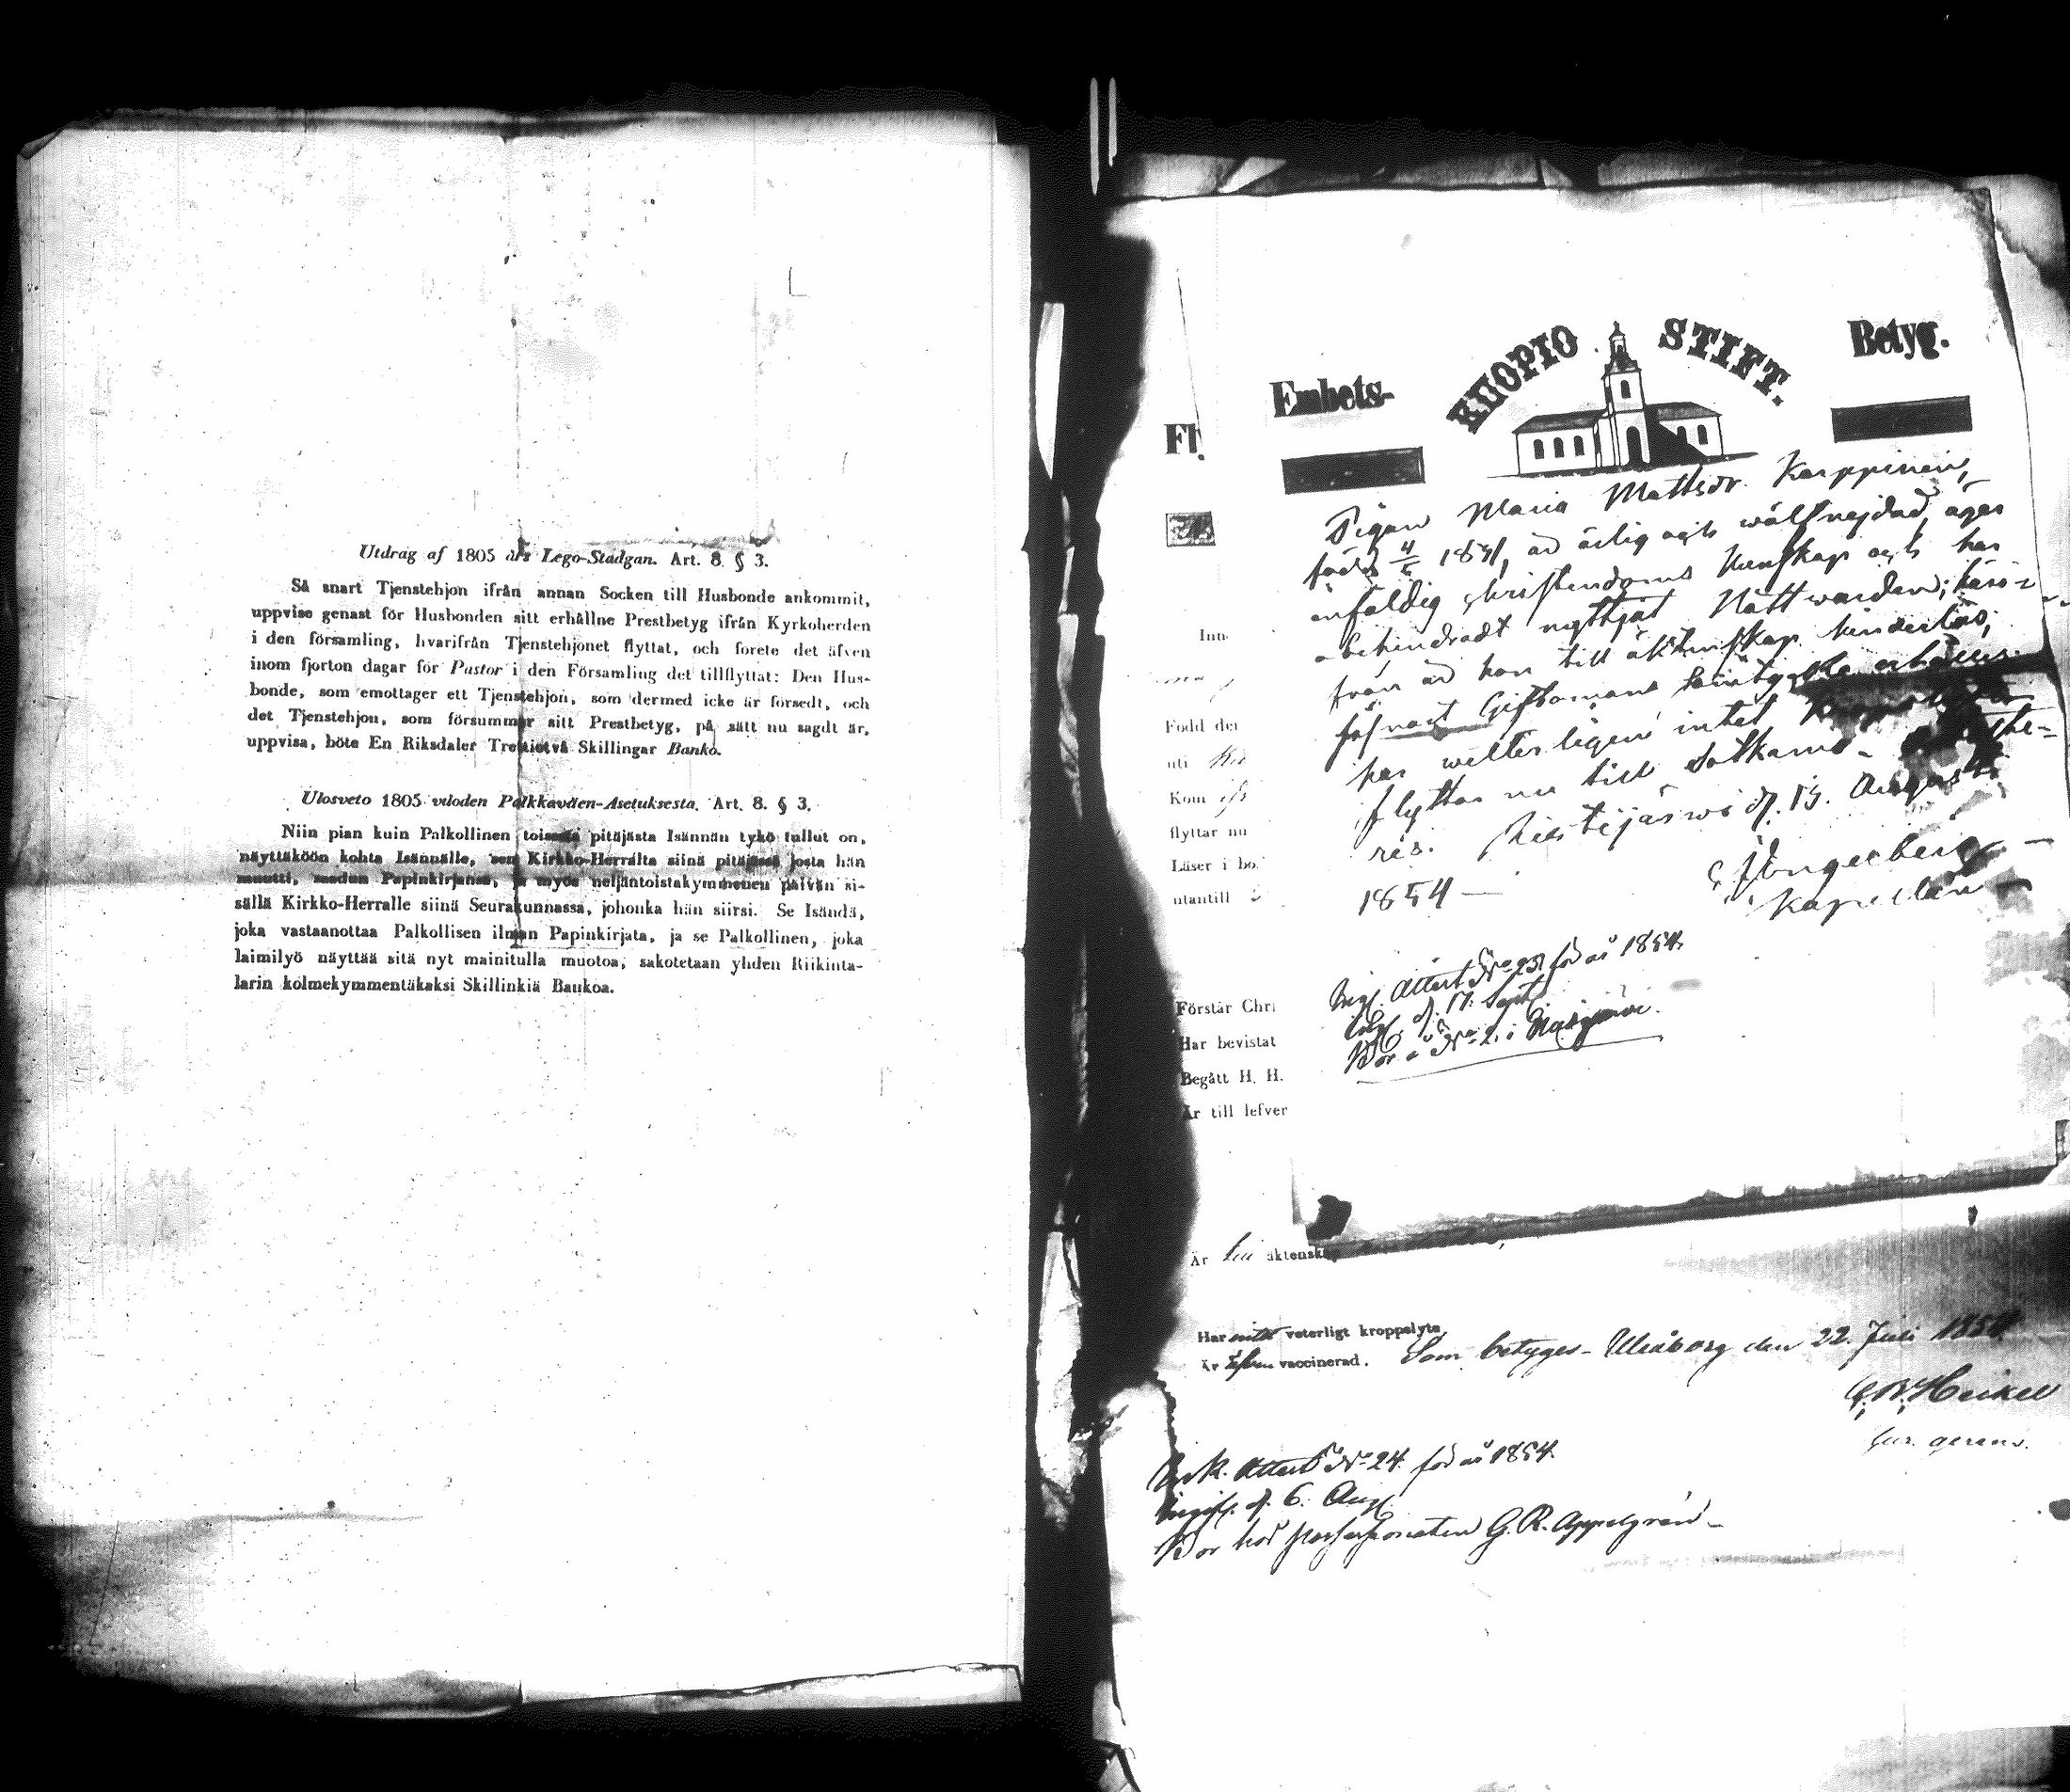 Utdrag af 1805 års Lego-Stadgan. Art. 8. § 3.
Så snart Tjenstehjon ifrån annan Socken till Husbonde ankommit,
uppvise genast för Husbonden sitt erhållne Prestbetyg ifrån Kyrkoherden
i den församling, hvarifrån Tjenstehjonet flyttat, och förete det äfven
inom fjorton dagar för Pastor i den Församling det tillflyttat: Den Hus-
bonde, som emottager ett Tjenstehjon, som dermed icke är försedt, och
det Tjenstehjon, som försummar sitt Prestbetyg, på sätt nu sagdt är,
uppvisa, böte En Riksdaler Trettiotvå Skillingar Banko.
Ulosveto 1805 vuoden Palkkaväen-Asetuksesta. Art. 8. § 3.
Niin pian kuin Palkollinen toisesta pitäjästa Isännän tykö tullut on,
näyttäköön kohta Isännälle, sen Kirkko-Herralta siinä pitäjässä josta hän
muutti, saadun Papinkirjansa, ja myös neljäntoistakymmenen päivän si-
sällä Kirkko-Herralle siinä Seurakunnassa, johonka hän siirsi. Se Isändä,
joka vastaanottaa Palkollisen ilman Papinkirjata, ja se Palkollinen, joka
laimilyö näyttää sitä nyt mainitulla muotoa, sakotetaan yhden Riikinta-
larin kolmekymmentäkaksi Skillinkiä Bankoa.
Embets-
KUOPIO STIFT.
Betyg.
Pigan Maria Mattsdr. Karppinen,
född 4/5 är ärlig och wälfrejdad, äger
enfaldig christendoms kunskap och har
obehindradt nyttjat Nattwarden; häri-
från är hon till äktenskap hinderlös,
Giftomans
har wetterligen intet
flyttar nu till Sotkamo
Aug
1854
Kapellan
Ink. Attest No för år 1854.
d. 17. Sept.
Bor å No 2. i
Inn
Född den
uti
Kom
flyttar nu
Läser i bo
utantill
Förstår Chri
Har bevistat
Begått H. H.
Är till lefver
Är till äktenska
Har intet veterligt kroppslyte
Är äfven vaccinerad. Som betyges - Uleåborg den 22. Juli 1854.
Heikel
Ink. Attest No 24. för år 1854.
d. 6. Aug.
Bor hos Possessionaten G. R. Appelgren